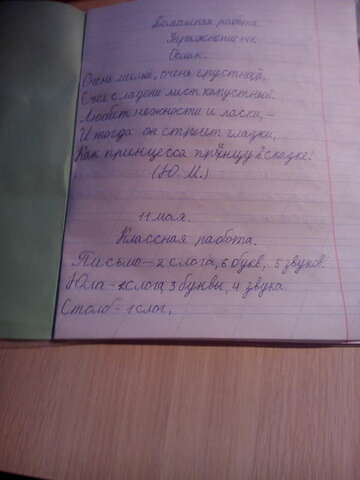 Домашняя работа
Упражнение
Ослик.
Очень милый, очень грустный,
Ест с ладони лист капустный.
Любит нежности и ласки, –
И тогда он строит глазки,
Как принцесса принцу в сказке!
(Ю. М.)
11 мая.
Классная работа.
Письмо – 2 слога, 6 букв, 5 звуков.
Юла – 2 слога 3 буквы, 4 звука.
Столб – 1 слог,